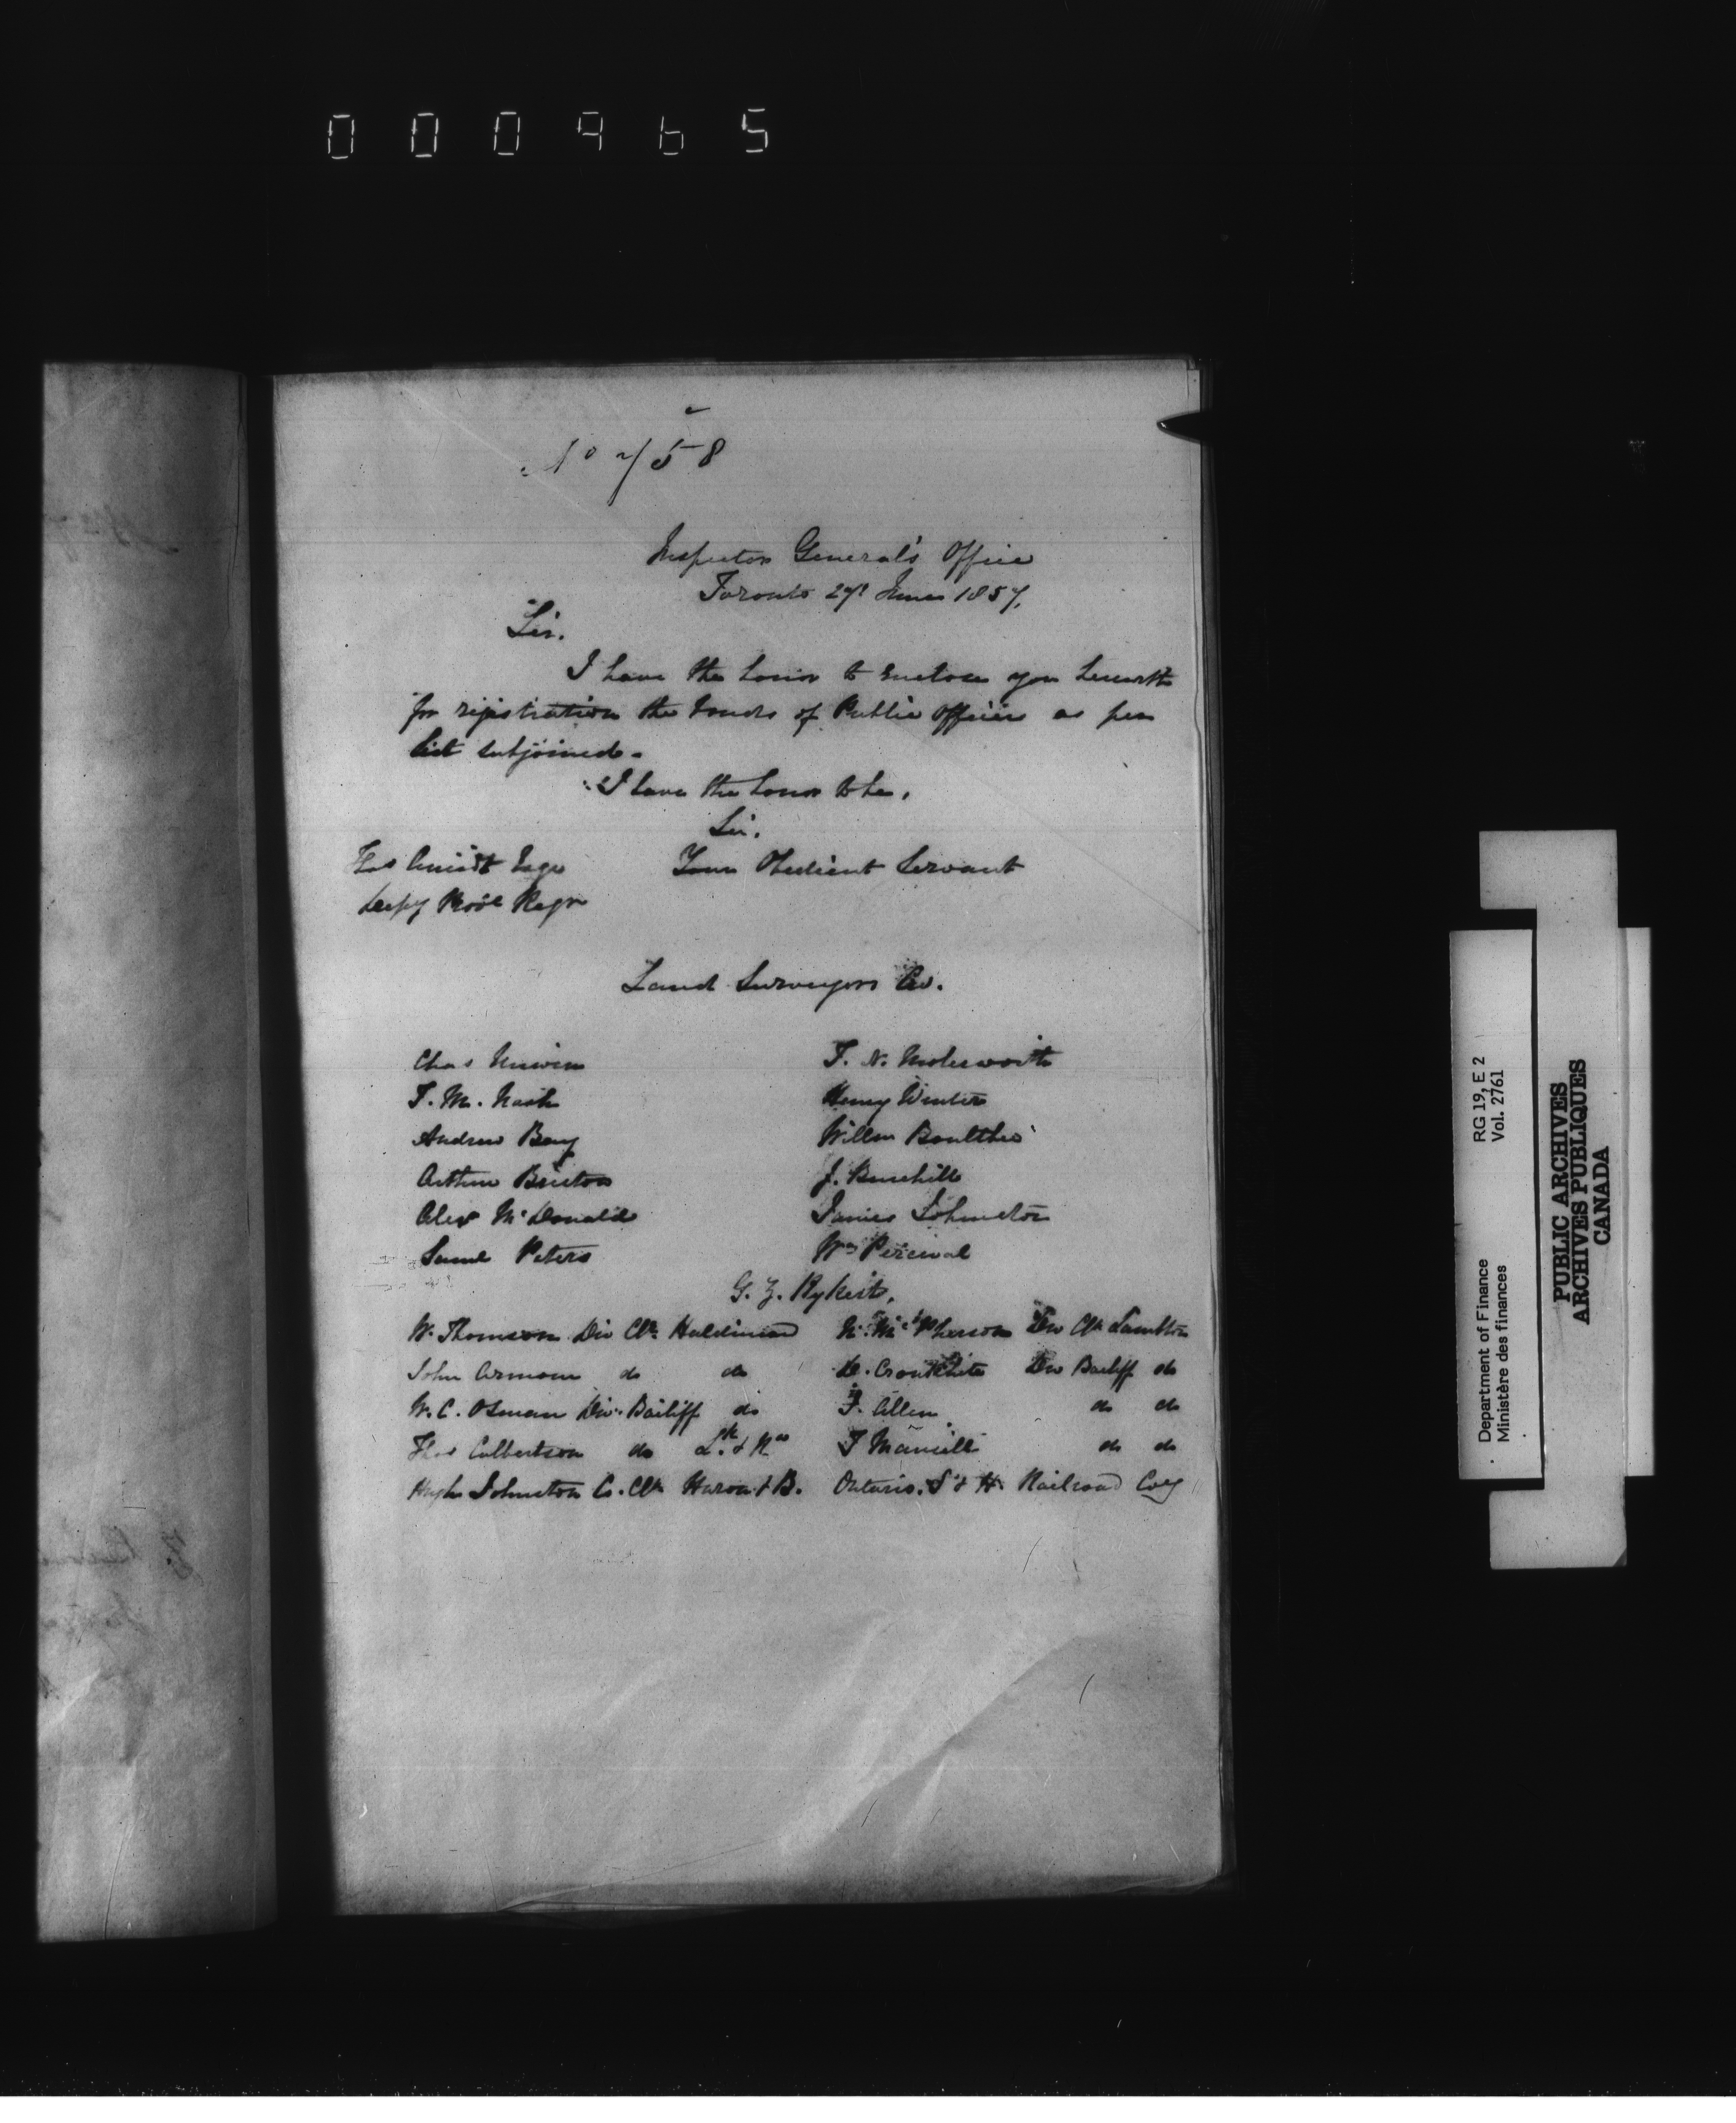 000965
No 758
Inspector General's Office
Toronto 27 June 1857,
Sir.
I have the honor to enclose you herewith
for registration the bonds of Public Officers as per
list subjoined.
I have the honor to be,
Sir.
Thos Amiot Esqr Your Obedient Servant
Depy Provl Regr
Land Surveyors &c.
Chas Unwin T. N. Molesworth
T. M. Nash Henry Winter
Andrew Bay Willm Boultbee
Arthur Bristow J. Burchill
Alexr McDonald James Johnston
Saml Peters Wm Percival
G. Z. Rykert,
W. Thomson Div Clk Haldimand McPherson Div Clk Lambton
John Armour do do D. Cronkhite Div Bailiff do
W. C. Osman Div. Bailiff do T. Allen do do
Thos Culbertson do do do
Hugh Johnston C. Clk Huron & B. Ontario. S & H. Railroad Coy
Department of Finance RG 19, E 2
Ministère des finances Vol. 2761
PUBLIC ARCHIVES
ARCHIVES PUBLIQUES
CANADA